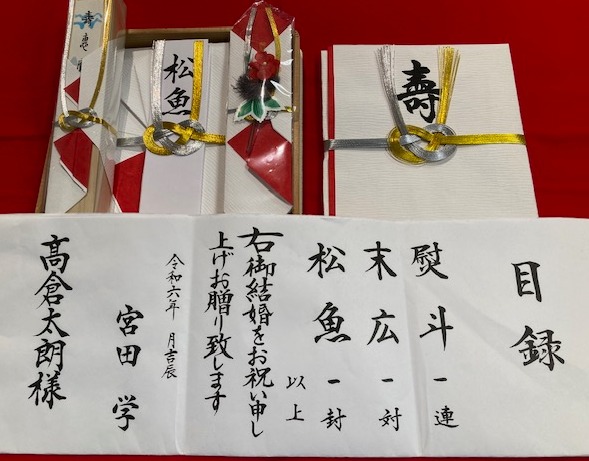 寿
松魚
寿
目録
熨斗 一連
末広 一対
松魚 一封
以上
右御結婚をお祝い申し
上げお贈り致します
令和六年 月吉辰
宮田 学
髙倉太朗様